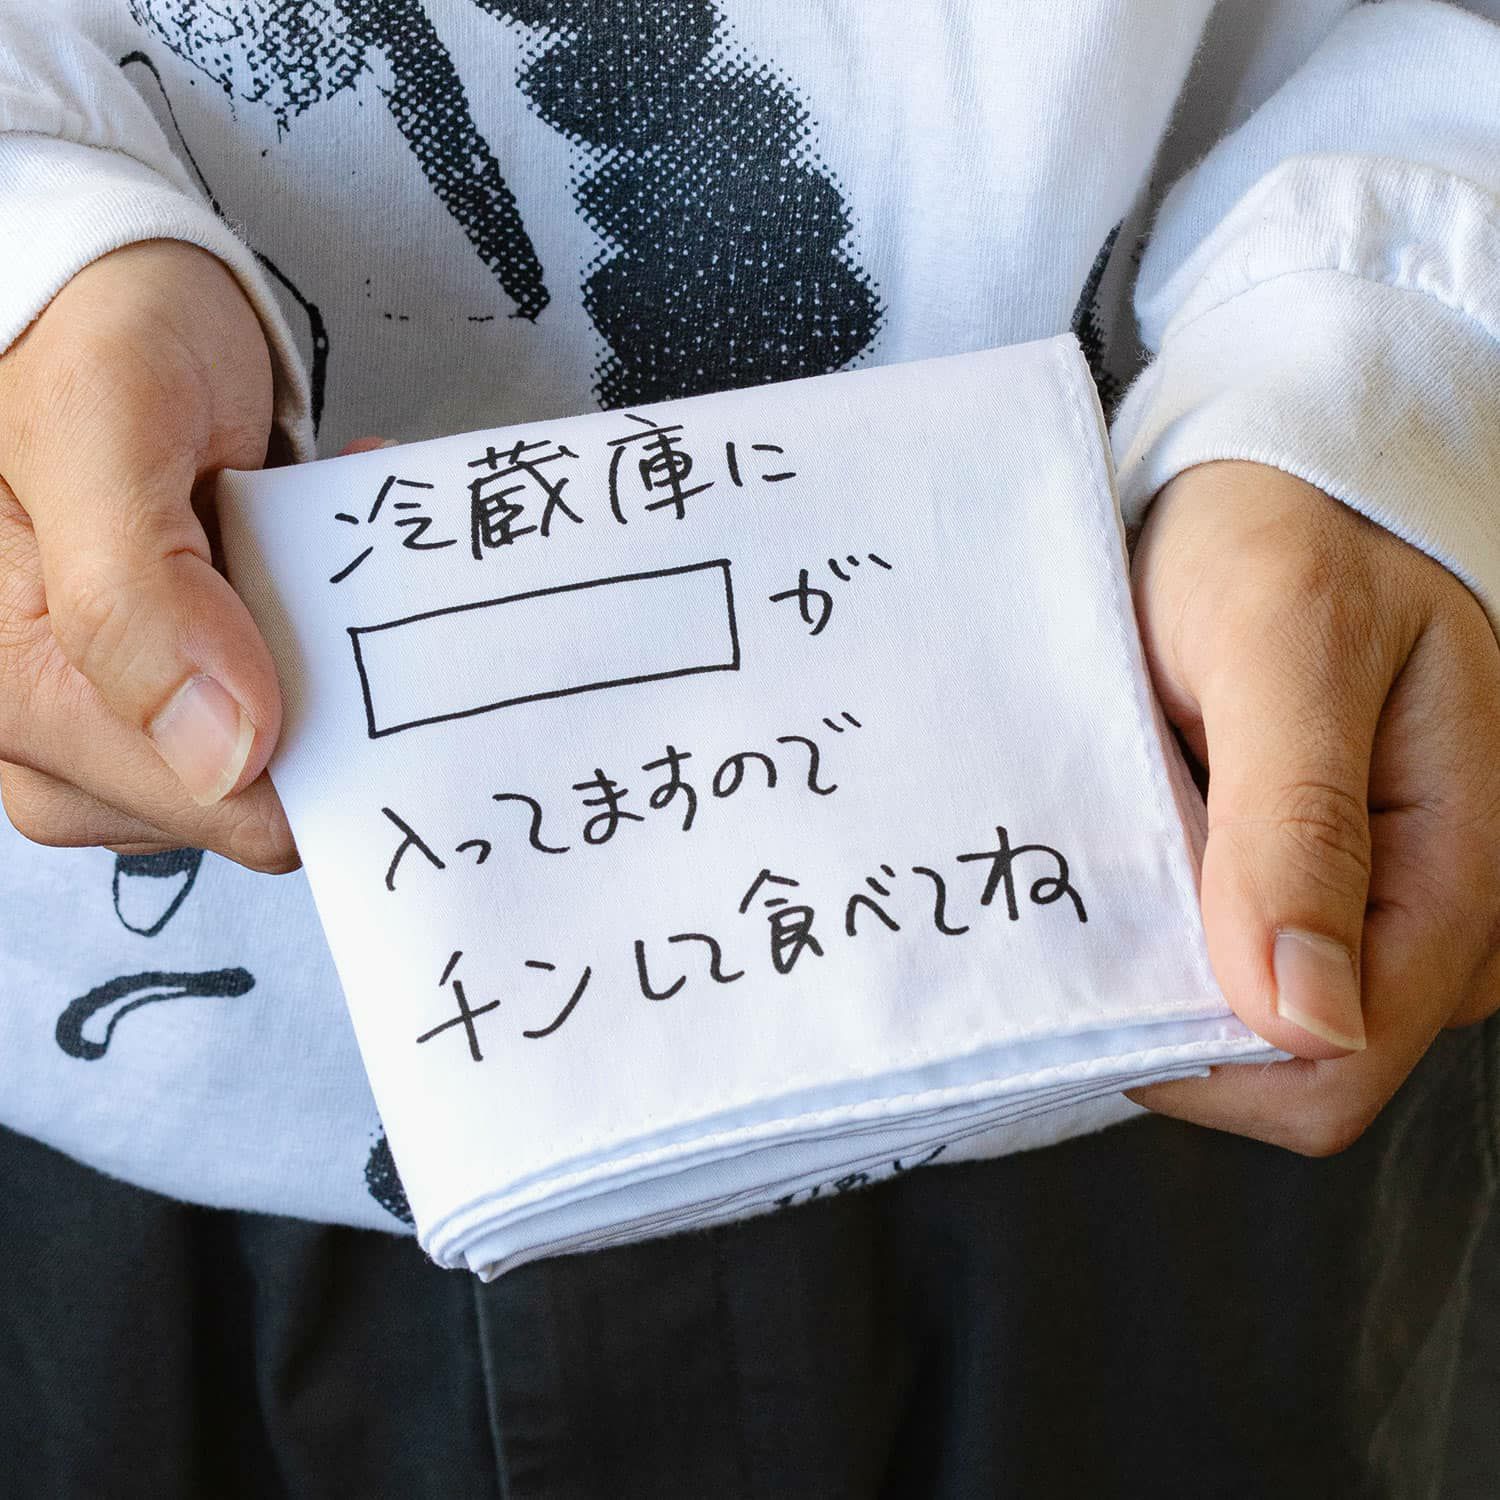 冷蔵庫に
が
入ってますので
チンして食べてね